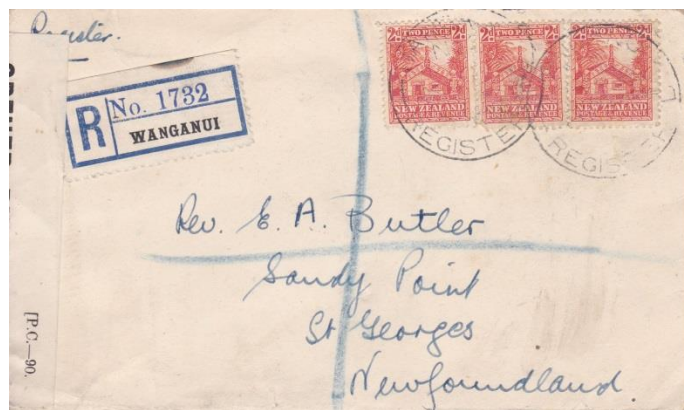 Register.
R No. 1732
WANGANUI
2D TWO PENCE 2D
NEW ZEALAND
POSTAGE & REVENUE
2D TWO PENCE 2D
NEW ZEALAND
POSTAGE & REVENUE
2D TWO PENCE 2D
NEW ZEALAND
POSTAGE & REVENUE
REGISTER
REGISTER
Rev. E. A. Butler
Sandy Point
St Georges
Newfoundland.
[P.C.—90.